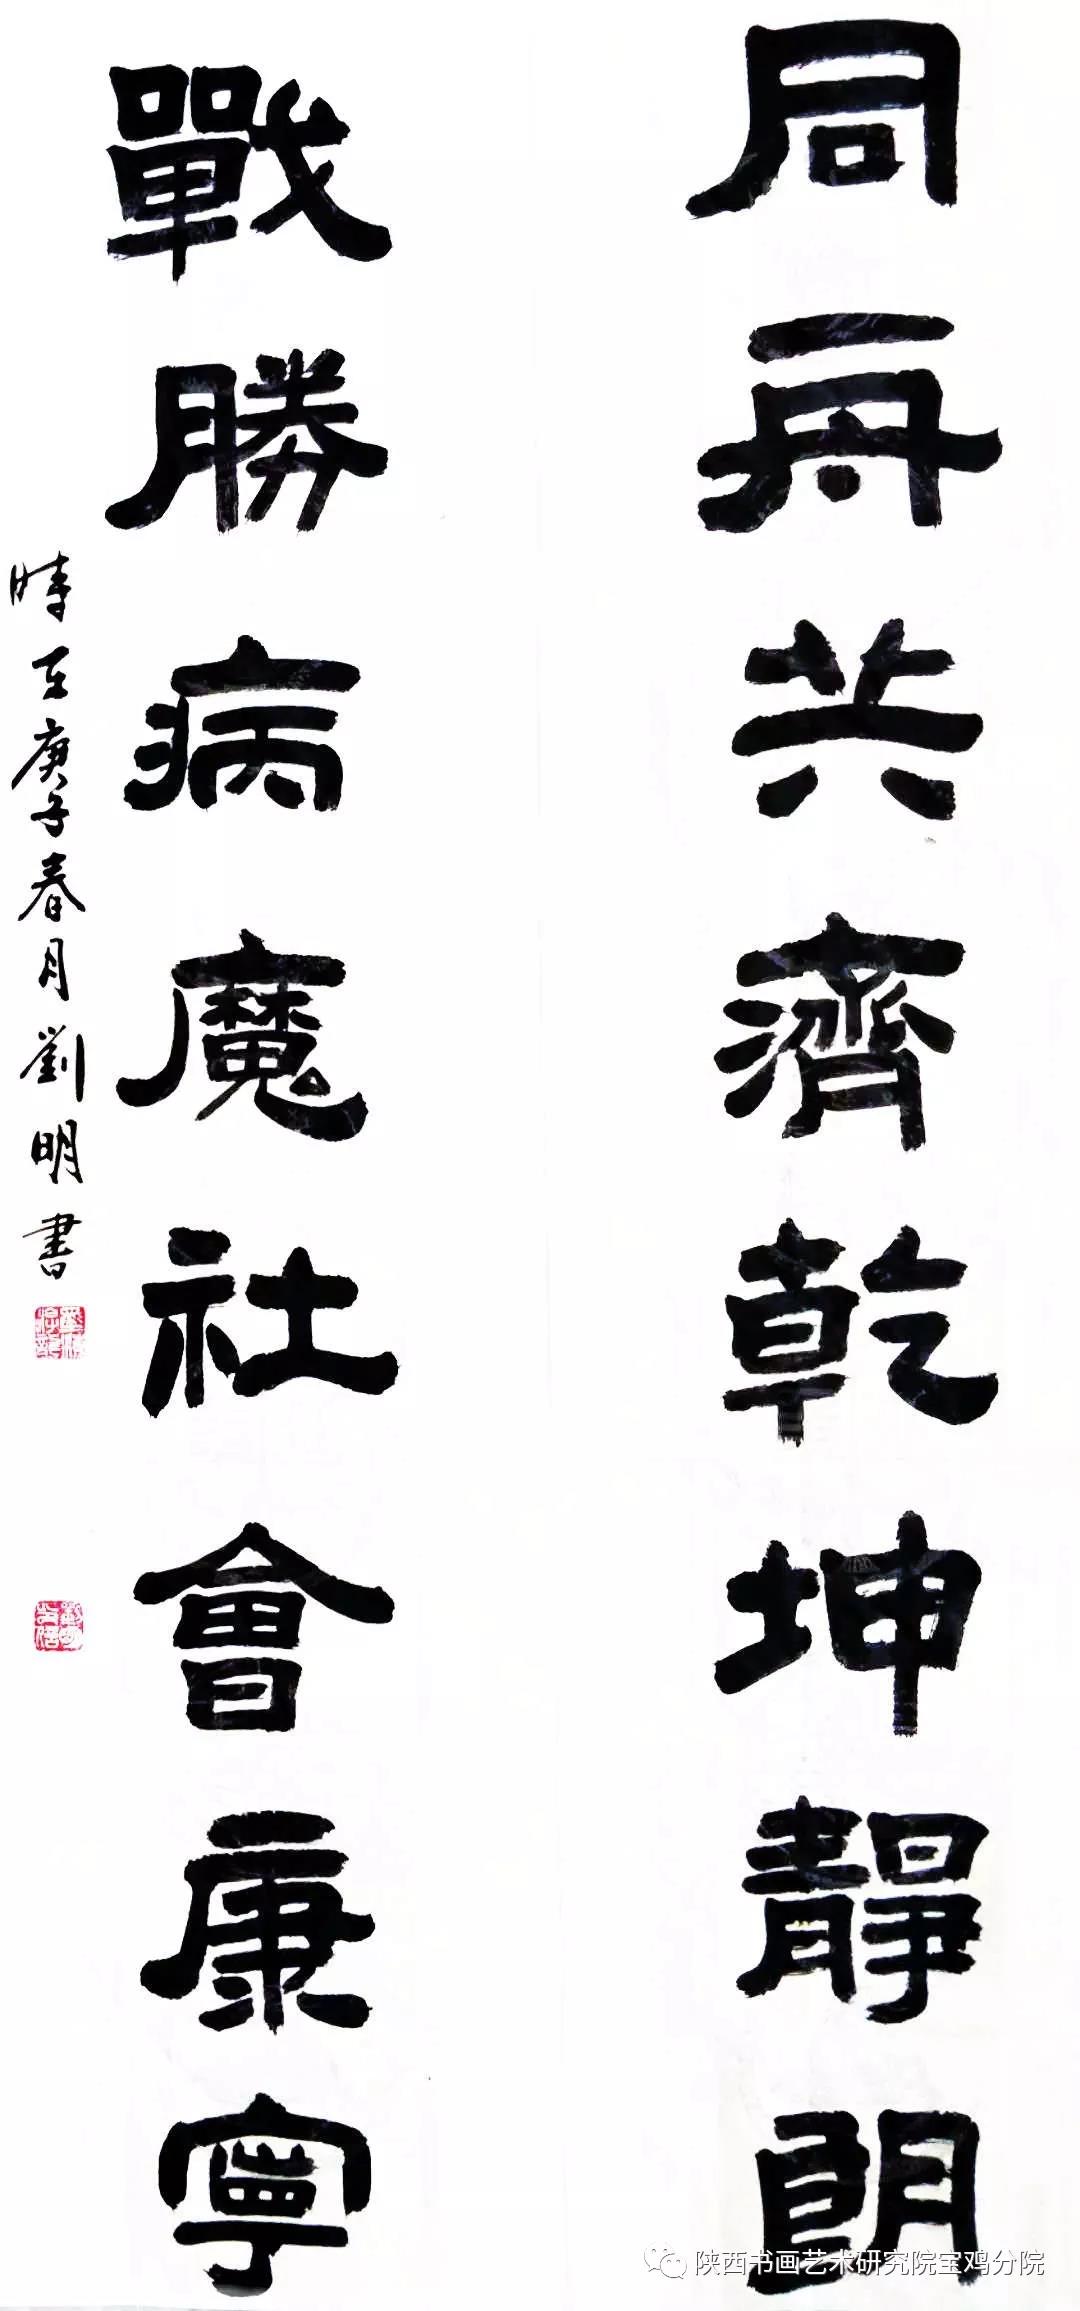 同舟共濟乾坤靜朗
戰勝病魔社會康寧
時在庚子春月劉明書
陕西书画艺术研究院宝鸡分院